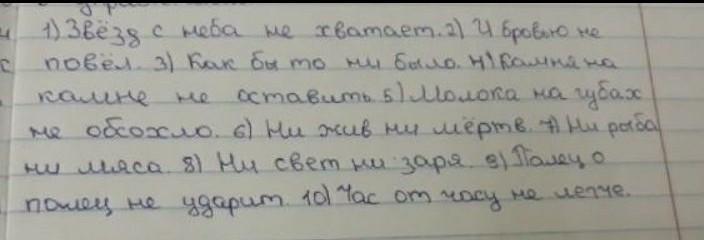 1) Звёзд с неба не хватает. 2) И бровью не
повёл. 3) Как бы то ни было. 4) Камня на
камне не оставить. 5) Молока на губах
не обсохло. 6) Ни жив ни мёртв. 7) Ни рыба
ни мяса. 8) Ни свет ни заря. 9) Палец о
палец не ударит. 10) Час от часу не легче.